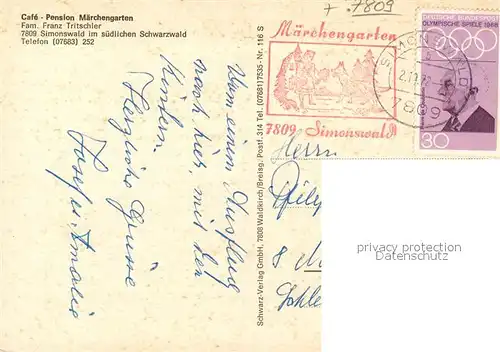 + 7809
Café - Pension Märchengarten
Fam. Franz Tritschler
7809 Simonswald im südlichen Schwarzwald
Telefon (07683) 252
Vom einem Ausflug
nach hier, mit den
Kindern.
Herzliche Grüsse
Josef u. Amalie
Schwarz-Verlag GmbH, 7808 Waldkirch/Breisg. Postf. 314 Tel. (07681)7535 · Nr. 116 S
Märchengarten
7809 Simonswald
SIMONSWALD
7809
DEUTSCHE BUNDESPOST
OLYMPISCHE SPIELE 1968
30
Herrn
privacy protection watermark
oldthing.de